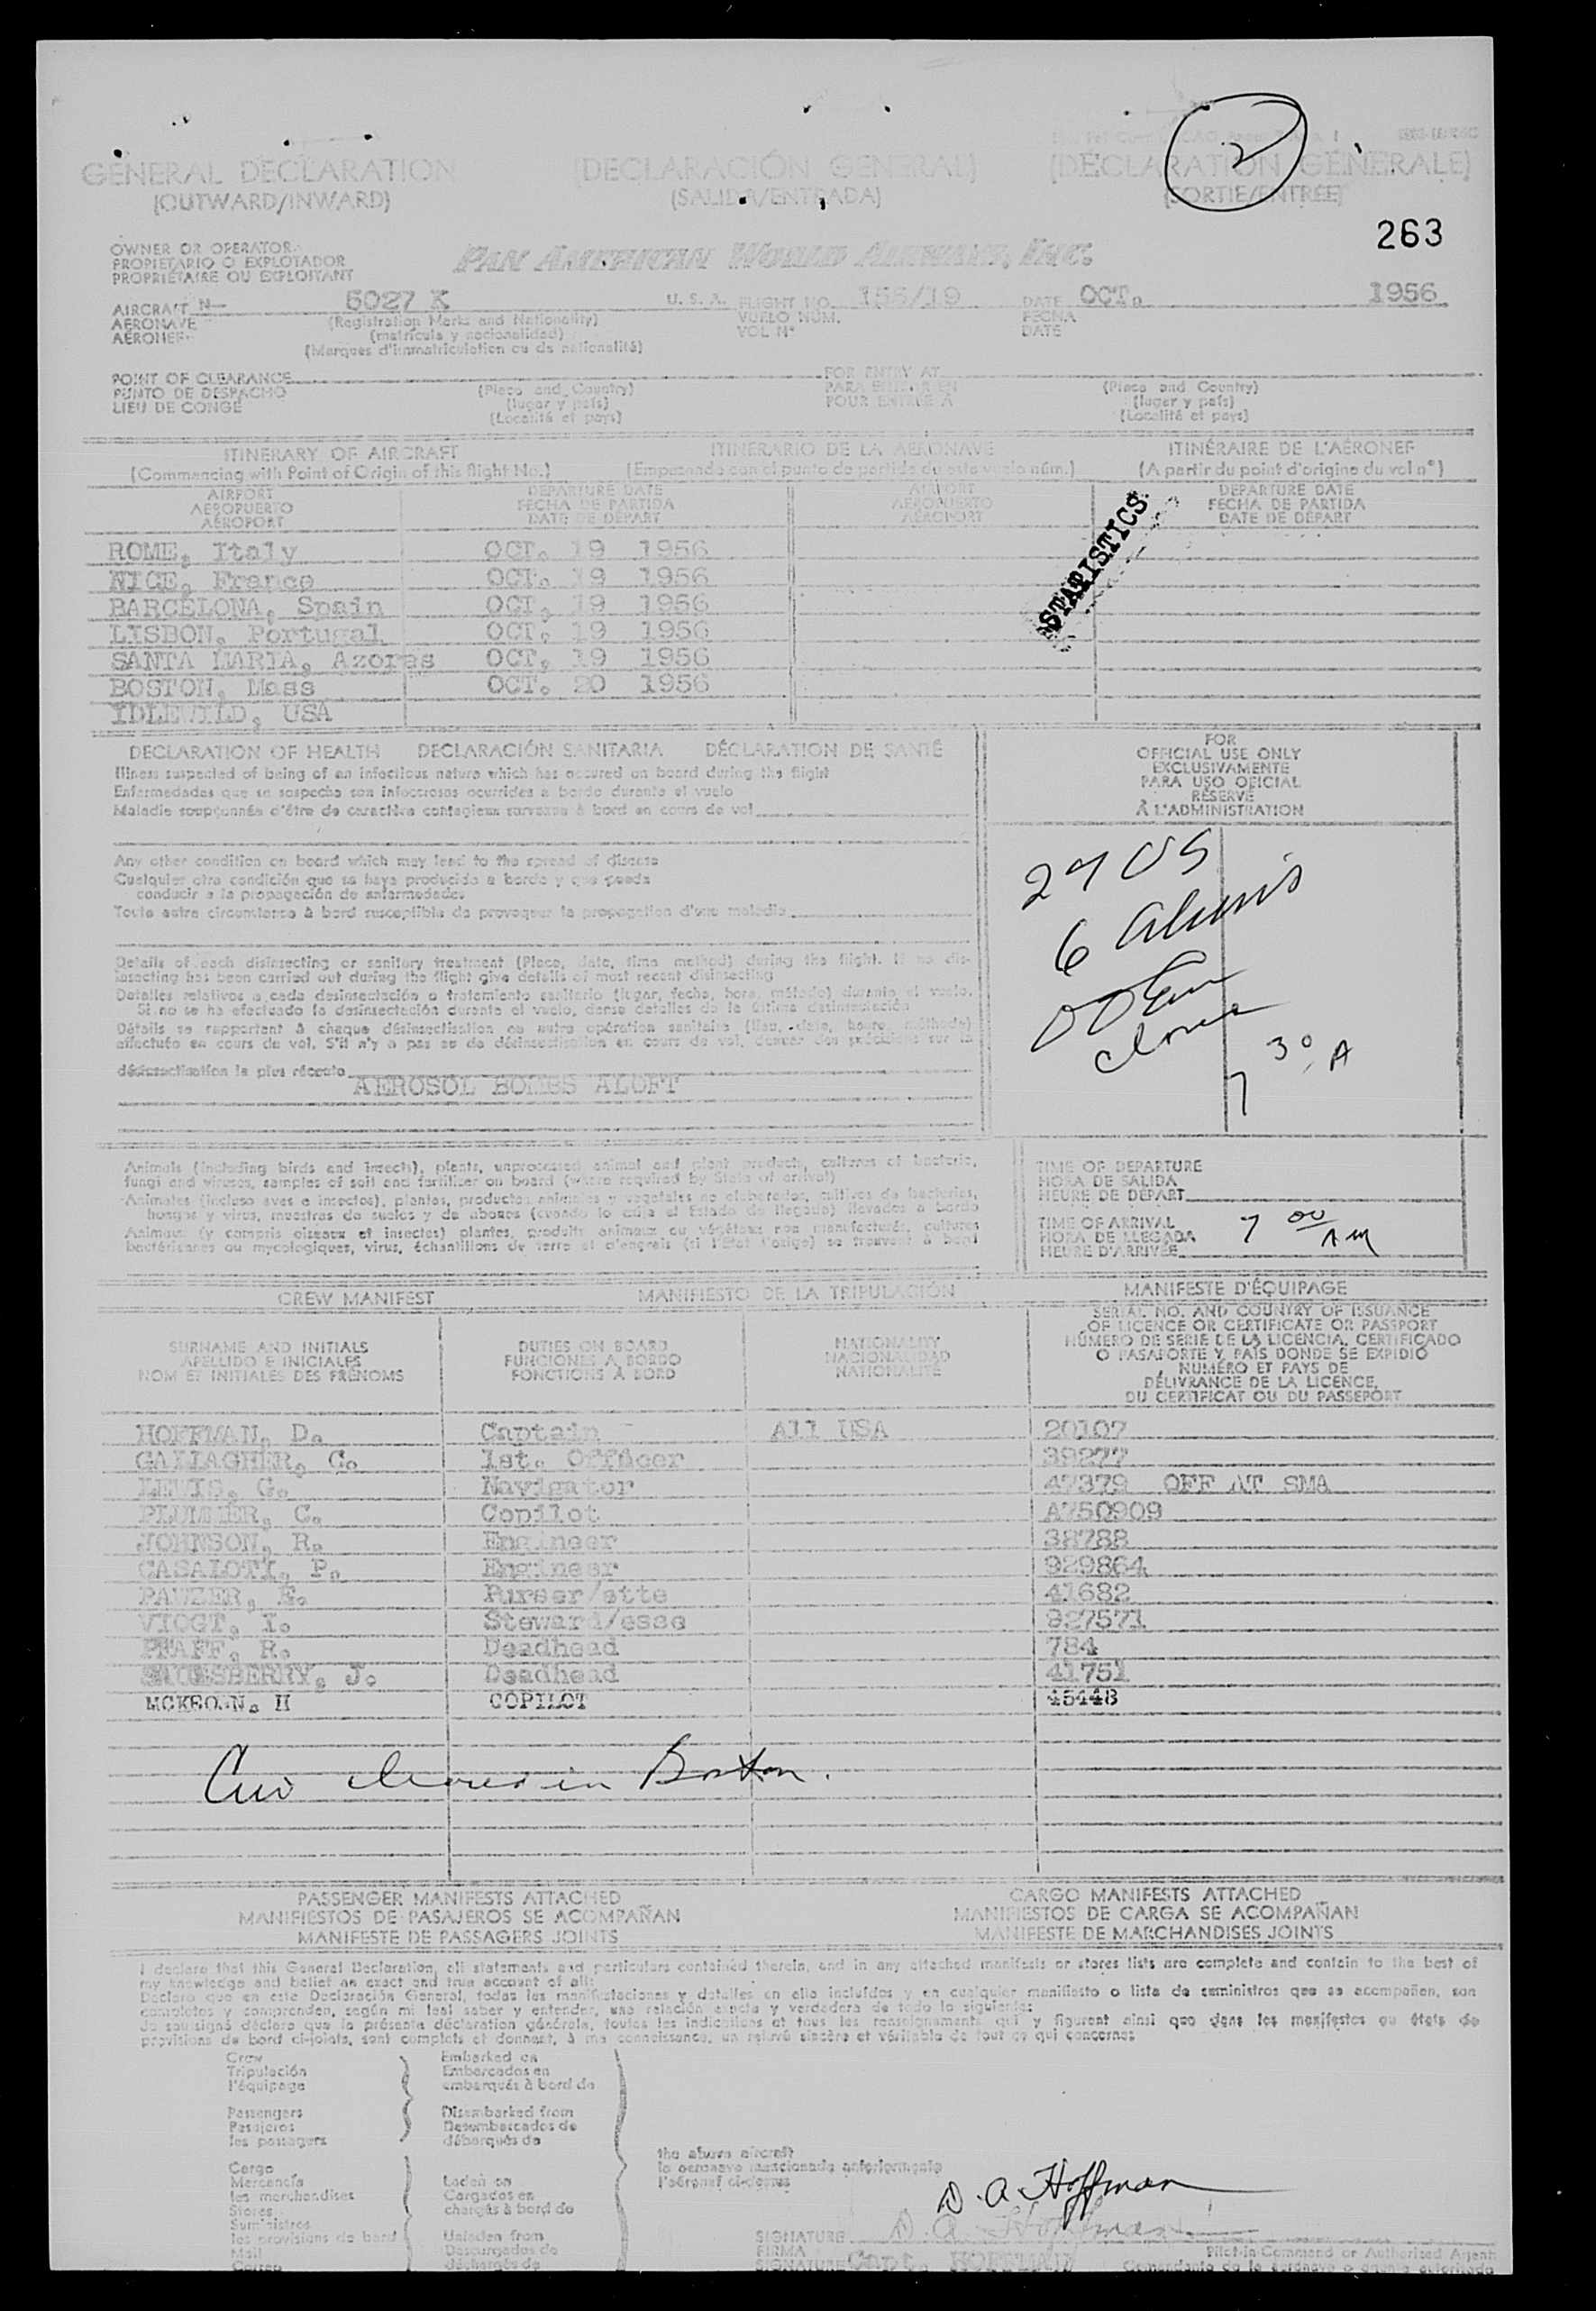 2
GENERAL DECLARATION (DECLARACIÓN GENERAL) (DÉCLARATION GÉNÉRALE)
(OUTWARD/INWARD) (SALIDA/ENTRADA) (SORTIE/ENTRÉE)
263
OWNER OR OPERATOR
PROPIETARIO O EXPLOTADOR
PROPRIÉTAIRE OU EXPLOITANT
PAN AMERICAN WORLD AIRWAYS, INC.
AIRCRAFT N- 5027 K U. S. A. FLIGHT NO. 155/19 DATE OCT. 1956
AERONAVE (Registration Marks and Nationality) VUELO NÚM. FECHA
AÉRONEF (matrícula y nacionalidad) VOL N° DATE
(Marques d'immatriculation ou de nationalité)
POINT OF CLEARANCE FOR ENTRY AT
PUNTO DE DESPACHO (Place and Country) PARA ENTRAR EN (Place and Country)
LIEU DE CONGÉ (lugar y país) POUR ENTRÉE À (lugar y país)
(Localité et pays) (Localité et pays)
ITINERARY OF AIRCRAFT ITINERARIO DE LA AERONAVE ITINÉRAIRE DE L'AÉRONEF
(Commencing with Point of Origin of this flight No.) (Empezando con el punto de partida de este vuelo núm.) (A partir du point d'origine du vol n°)
AIRPORT DEPARTURE DATE AIRPORT DEPARTURE DATE
AEROPUERTO FECHA DE PARTIDA AEROPUERTO FECHA DE PARTIDA
AÉROPORT DATE DE DÉPART AÉROPORT DATE DE DÉPART
STATISTICS
ROME, Italy OCT. 19 1956
NICE, France OCT. 19 1956
BARCELONA, Spain OCT. 19 1956
LISBON, Portugal OCT. 19 1956
SANTA MARIA, Azores OCT. 19 1956
BOSTON, Mass OCT. 20 1956
IDLEWILD, USA
DECLARATION OF HEALTH DECLARACIÓN SANITARIA DÉCLARATION DE SANTÉ
Illness suspected of being of an infectious nature which has occured on board during the flight
Enfermedades que se sospecha son infecciosas ocurridas a bordo durante el vuelo
Maladie soupçonnée d'être de caractère contagieux survenue à bord en cours de vol
Any other condition on board which may lead to the spread of disease
Cualquier otra condición que se haya producido a bordo y que pueda
conducir a la propagación de enfermedades
Toute autre circonstance à bord susceptible de provoquer la propagation d'une maladie
Details of each disinsecting or sanitary treatment (Place, date, time method) during the flight. If no dis-
insecting has been carried out during the flight give details of most recent disinsecting
Detalles relativos a cada desinsectación o tratamiento sanitario (lugar, fecha, hora, método) durante el vuelo.
Si no se ha efectuado la desinsectación durante el vuelo, dense detalles de la última desinsectación
Détails se rapportant à chaque désinsectisation ou autre opération sanitaire (lieu, date, heure, méthode)
effectuée en cours de vol. S'il n'y a pas eu de désinsectisation en cours de vol, donner des précisions sur la
désinsectisation la plus récente
AEROSOL BOMBS ALOFT
FOR
OFFICIAL USE ONLY
EXCLUSIVAMENTE
PARA USO OFICIAL
RÉSERVÉ
À L'ADMINISTRATION
29 US
6 aliens
7 30 A
Animals (including birds and insects), plants, unprocessed animal and plant products, cultures of bacteria,
fungi and viruses, samples of soil and fertilizer on board (where required by State of arrival)
Animales (incluso aves e insectos), plantas, productos animales y vegetales no elaborados, cultivos de bacterias,
hongos y virus, muestras de suelos y de abonos (cuando lo exija el Estado de llegada) llevados a bordo
Animaux (y compris oiseaux et insectes) plantes, produits animaux ou végétaux non manufacturés, cultures
bactériennes ou mycologiques, virus, échantillons de terre et d'engrais (si l'État l'exige) se trouvant à bord
TIME OF DEPARTURE
HORA DE SALIDA
HEURE DE DÉPART
TIME OF ARRIVAL
HORA DE LLEGADA 7 00 AM
HEURE D'ARRIVÉE
CREW MANIFEST MANIFIESTO DE LA TRIPULACIÓN MANIFESTE D'ÉQUIPAGE
SURNAME AND INITIALS
APELLIDO E INICIALES
NOM ET INITIALES DES PRÉNOMS
DUTIES ON BOARD
FUNCIONES A BORDO
FONCTIONS À BORD
NATIONALITY
NACIONALIDAD
NATIONALITÉ
SERIAL NO. AND COUNTRY OF ISSUANCE
OF LICENCE OR CERTIFICATE OR PASSPORT
NÚMERO DE SERIE DE LA LICENCIA, CERTIFICADO
O PASAPORTE Y PAÍS DONDE SE EXPIDIÓ
NUMÉRO ET PAYS DE
DÉLIVRANCE DE LA LICENCE,
DU CERTIFICAT OU DU PASSEPORT
HOFFMAN, D. Captain All USA 20107
GALLAGHER, C. 1st. Officer 39277
LEWIS, G. Navigator 47379 OFF AT SMA
PLUMMER, C. Copilot A750909
JOHNSON, R. Engineer 38788
CASALOTI, P. Engineer 929864
PAUZER, E. Purser/ette 41682
VIOGT, I. Steward/esse 927571
PFAFF, R. Deadhead 784
J. Deadhead 41751
MCKEOWN, H COPILOT 45448
Crew cleared in Boston.
PASSENGER MANIFESTS ATTACHED CARGO MANIFESTS ATTACHED
MANIFIESTOS DE PASAJEROS SE ACOMPAÑAN MANIFIESTOS DE CARGA SE ACOMPAÑAN
MANIFESTE DE PASSAGERS JOINTS MANIFESTE DE MARCHANDISES JOINTS
I declare that this General Declaration, all statements and particulars contained therein, and in any attached manifests or stores lists are complete and contain to the best of
my knowledge and belief an exact and true account of all:
Declaro que en esta Declaración General, todas las manifestaciones y detalles en ella incluídos y en cualquier manifiesto o lista de suministros que se acompañen, son
completos y comprenden, según mi leal saber y entender, una relación exacta y verdadera de todo lo siguiente:
Je soussigné déclare que la présente déclaration générale, toutes les indications et tous les renseignements qui y figurent ainsi que dans les manifestes ou états de
provisions de bord ci-joints, sont complets et donnent, à ma connaissance, un relevé sincère et véritable de tout ce qui concerne:
Crew Embarked on
Tripulación Embarcados en
l'équipage embarqués à bord de
Passengers Disembarked from
Pasajeros Desembarcados de
les passagers débarqués de
the above aircraft
la aeronave mencionada anteriormente
l'aéronef ci-dessus
Cargo
Mercancía Laden on
les marchandises Cargados en
Stores chargés à bord de
Suministros
les provisions de bord Unladen from
Mail Descargados de
Correo déchargés de
D. A. Hoffman
SIGNATURE D. A. Hoffman
FIRMA Pilot-in Command or Authorized Agent
SIGNATURE Capt. HOFFMAN Comandante de la aeronave o agente autorizado